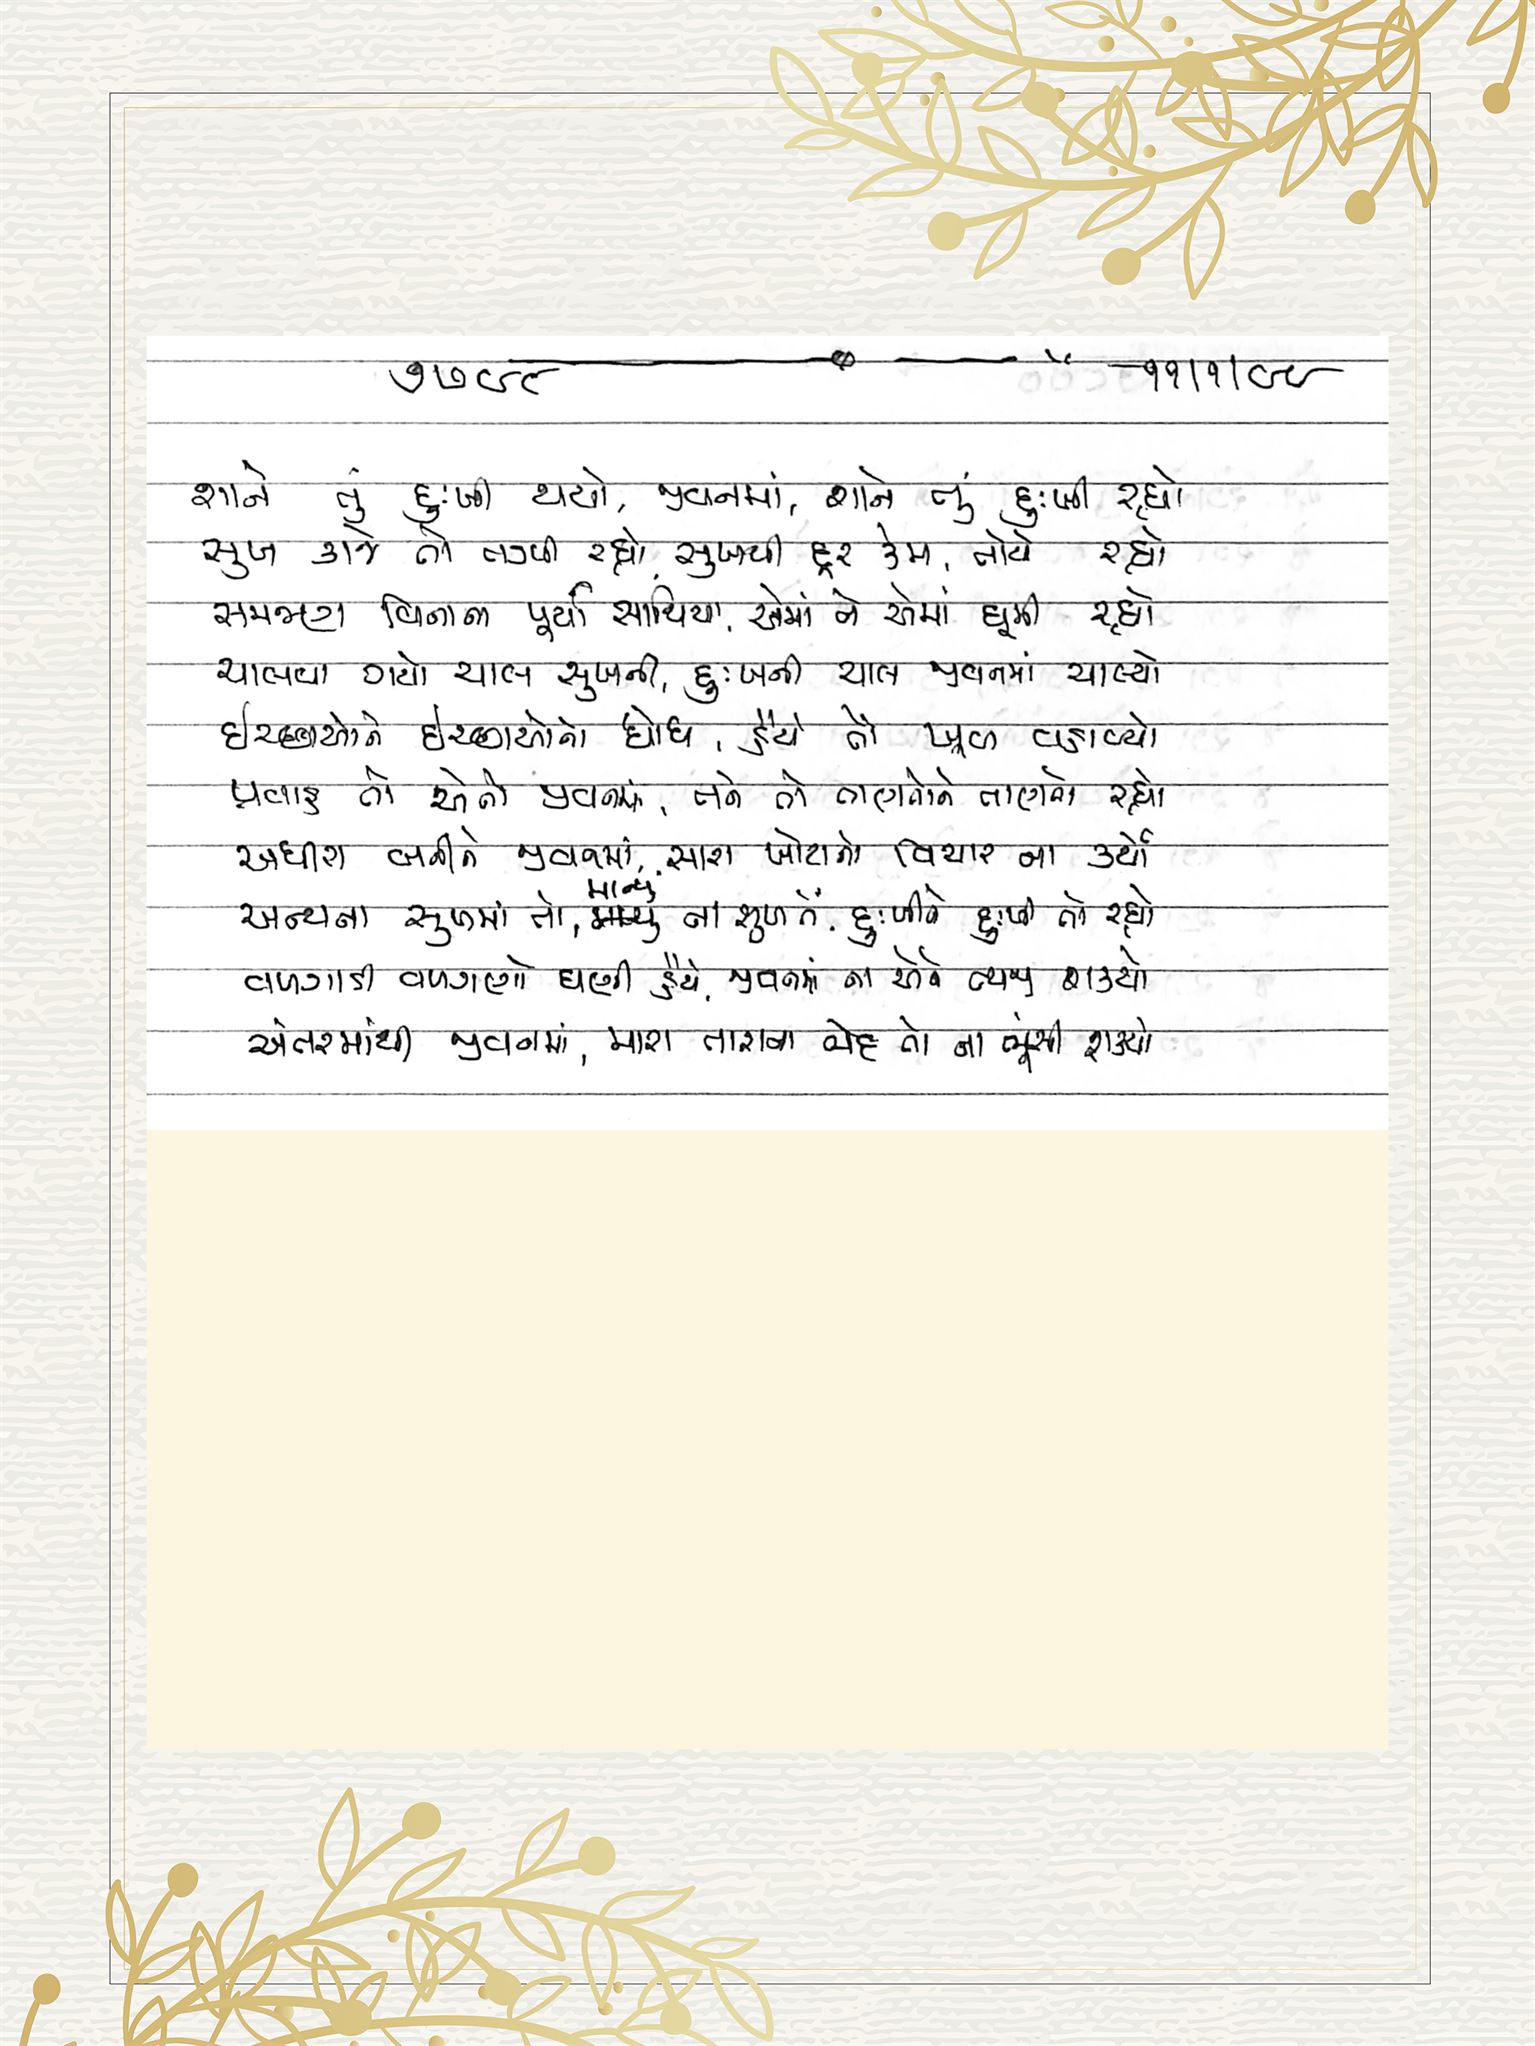 ૭૭૯૯ ૧૧|૧|૯૯
શાને તું દુઃખી થયો, જીવનમાં, શાને તું દુઃખી રહ્યો
સુખ કાજે તો તડપી રહ્યો, સુખથી દૂર કેમ, તોયે રહ્યો
સમજણ વિનાના પૂર્યા સાથિયા, એમાં ને એમાં ઘૂમી રહ્યો
ચાલવા ગયો ચાલ સુખની, દુઃખની ચાલ જીવનમાં ચાલ્યો
ઇચ્છાઓને ઇચ્છાઓનો ધોધ, હૈયે તોં ખૂબ વહાવ્યો
પ્રવાહ તો એનો જીવનમાં, તને તો તાણતોને તાણતો રહ્યો
અધીરા બનીને જીવનમાં, સારા ખોટાનો વિચાર ના કર્યો
અન્યના સુખમાં તો, માન્યું ના સુખ તેં, દુઃખીને દુઃખી તો રહ્યો
વળગાડી વળગણો ઘણી હૈયે, જીવનમાં ના એને ત્યજી શક્યો
અંતરમાંથી જીવનમાં, મારા તારાના ભેદ તો ના ભૂંસી શક્યો